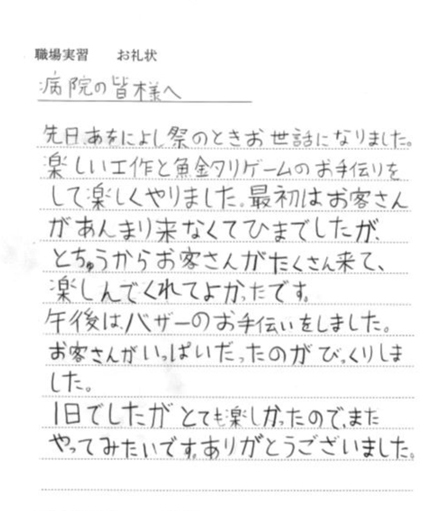 職場実習　お礼状
病院の皆様へ
先日、あをによし祭のときお世話になりました。
楽しい工作と魚釣りゲームのお手伝りを
して楽しくやりました。最初はお客さん
があんまり来なくてひまでしたが、
とちゅうからお客さんがたくさん来て、
楽しんでくれてよかったです。
午後は、バザーのお手伝いをしました。
お客さんがいっぱいだったのがびっくりしま
した。
1日でしたがとても楽しかったので、また
やってみたいです。ありがとうございました。